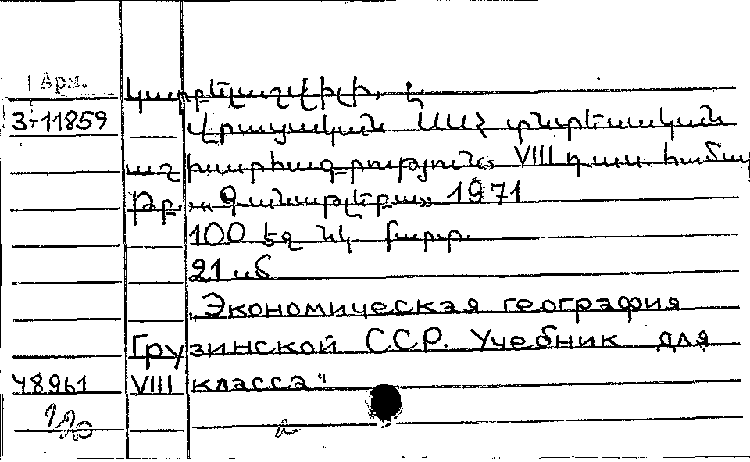 Арм.
Կարբելաշվիլի, Ե.
3-11859
Վրացական ՍՍՀ տնտեսական
աշխարհագրություն. VIII դաս. համար
Թբ. «Գանաթլեբա» 1971
100 էջ նկ. քարտ.
21 սմ
Экономическая география
Грузинской ССР. Учебник для
48961 VIII класса"